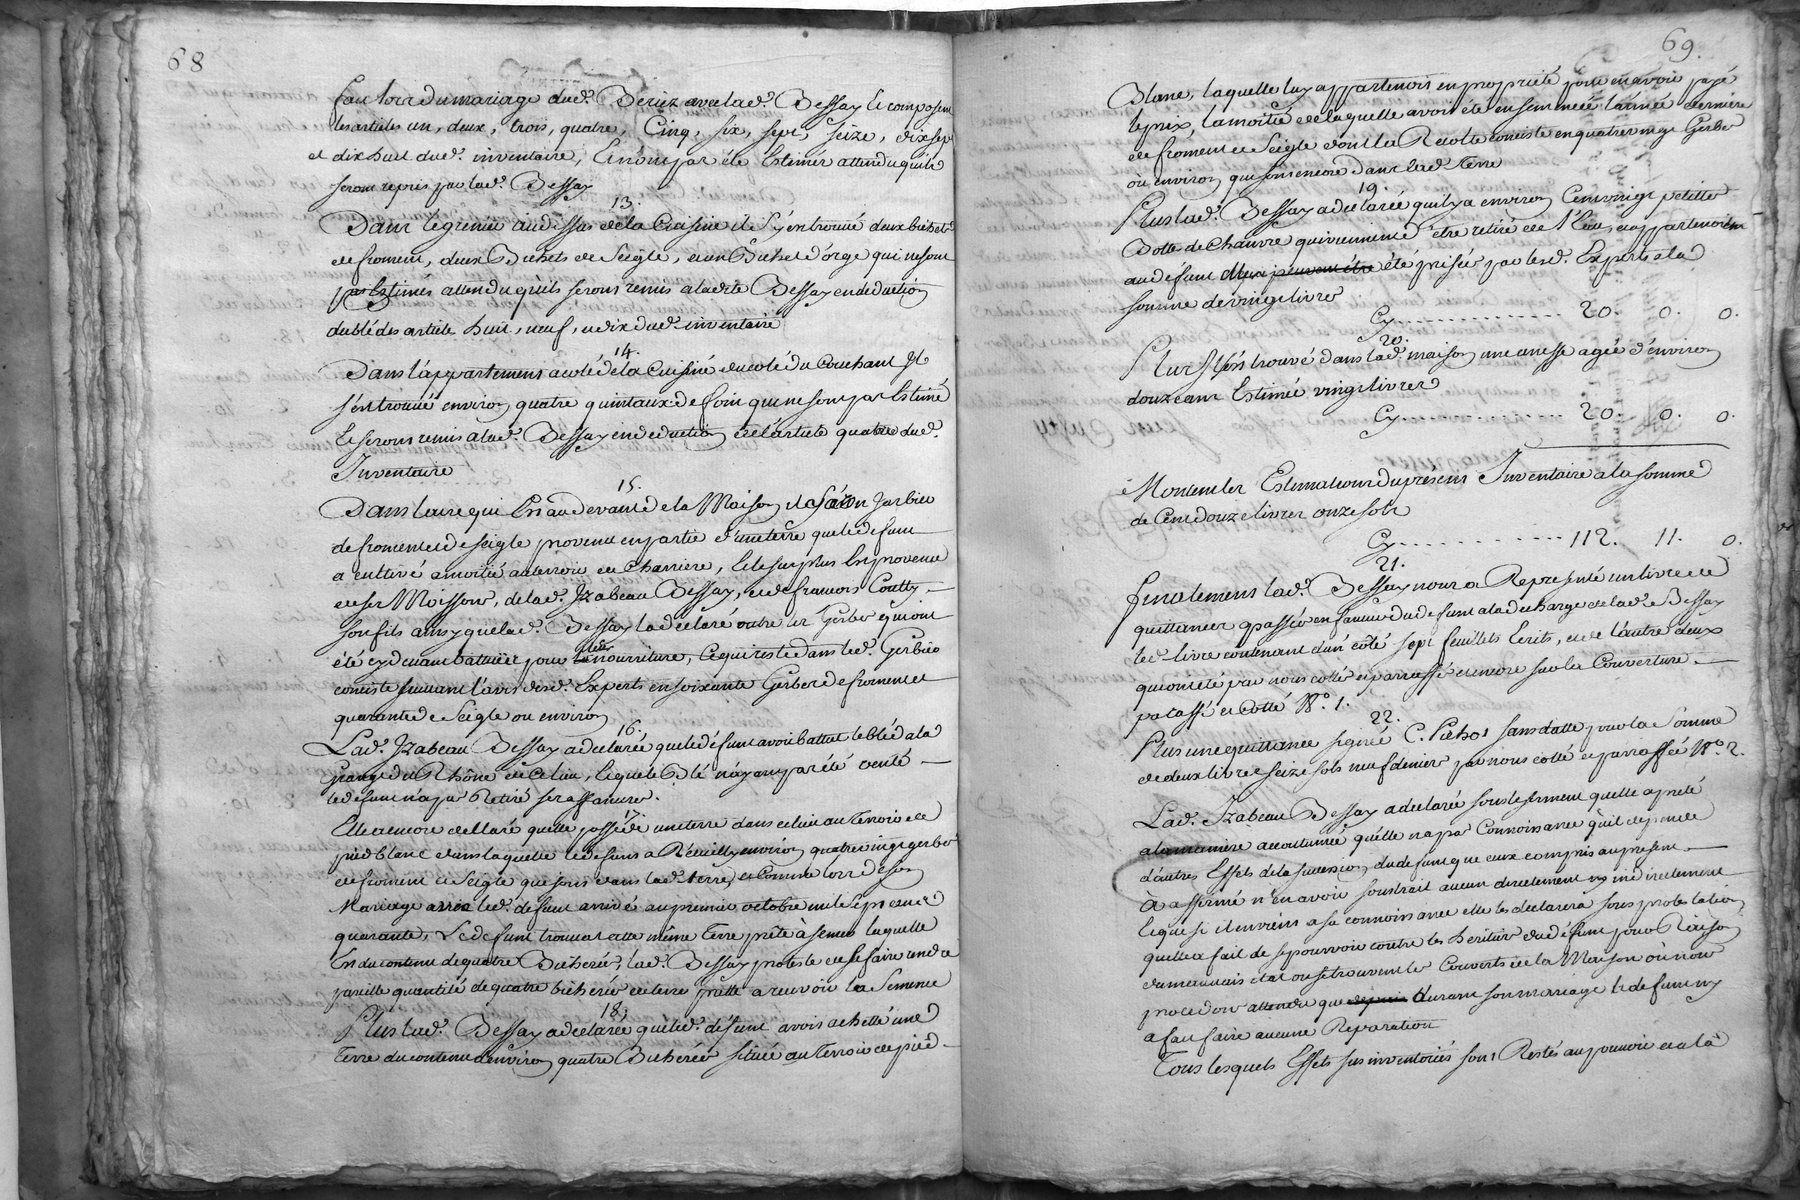 68
fait lors du mariage dud. Beriez avec lad. Bessay le composent
les articles un, deux, trois, quatre, Cinq, six, sept, seize, dix sept
et dix huit dud. inventaire, Et n'ont pas été Estimes attendu qu'ils
seront repris par lad. Bessay
13.
Dans le grenier au dessus de la Cuisine il s'y en trouvé deux bichets
de froment, deux Bichets de Seigle, et un Bichet d'orge qui ne sont
pas Estimés attendu qu'ils seront remis a ladite Bessay en deduction
du bled des articles huit, neuf, et dix dud. inventaire
14.
Dans l'appartement a coté de la Cuisine du coté du Couchant Il
s'en trouvé environ quatre quintaux de foin qui ne sont pas Estimé
Et seront remis a lad. Bessay en deduction de l'article quatre dud.
Inventaire
15.
Dans l'aire qui Est au devant de la Maison il a un Gerbier
de froment et de seigle provenu en partie d'une terre que led. defunt
a cultivé a moitié au terroir de Charriere, Et le surplus Est provenu
de ses Moissons, de lad. Izabeau Bessay, et de françois Coutty
son fils ainsy que lad. Bessay la declaré outre les Gerbes qui ont
été cy devant battuës pour leur nourriture, Ce qui reste dans led. Gerbier
consiste suivant l'avis desd. Experts en soixante Gerbes de froment et
quarante de Seigle ou environ
16.
Lad. Izabeau Bessay a declarée que le défunt avoit battut le bled a la
Grange du Rhône de ce lieu, lequel Blé n'ayant pas été venté
le defunt n'a pas Retiré ses affanures.
17.
Elle a encore declaré quelle possede une terre dans ce lieu au Terroir de
pied blanc dans laquelle le defunt a Receuilly environ quatre vingt gerbes
de froment et Seigle qui sont dans lad. terre, et Comme lors de son
Mariage avec led. defunt arrivé au premier octobre mil sept cent
quarante, Le defunt trouva cette même Terre prête à semer laquelle
Est du contenu de quatre Bicherées, lad. Bessay proteste de se faire rendre
pareille quantité de quatre bicherées de terre prette a recevoir la Semence
18.
Plus lad. Bessay a declarée que led. défunt avoit achetté une
Terre du contenu d'environ quatre Bicherées située au Terroir de pied
69.
Blanc, laquelle luy appartenoit en propriété pour en avoir payé
le prix, la moitié de laquelle avoit été ensemencée l'année derniere
de froment et Seigle dont la Recolte consiste en quatre vingt Gerbes
ou environ qui sont encore dans lad. Terre
19.
Plus lad. Bessay a declarée qu'il y a environ Cent vingt petittes
Bottes de Chanvre qui viennent d'être retiré de l'Eau, et appartenoient
au défunt été prisées par lesd. Experts a la
somme de vingt livres
Cy .............. 20. 0. 0.
20.
Plus s'est trouvé dans lad. maison une anesse agée d'environ
douze ans Estimée vingt livres
Cy .............. 20. 0. 0.
Montent les Estimations du présent Inventaire a la somme
de Cent douze livres onze sols
Cy .............. 112. 11. 0.
21.
finalement lad. Bessay nous a Representé un livre de
quittances passées en faveur du defunt a la decharge de lad. Bessay
led. livre contenant d'un côté sept feuillets Ecrits, et de l'autre deux
qui ont été par nous cottés et parraffé et encore sur la Couverture
parraffé et Cotté No. 1.
22.
Plus une quittance signée C. Pichot sans datte pour la Somme
de deux livres seize sols neuf deniers par nous cotté et parraffée No. 2.
Lad. Izabeau Bessay a declarée sous le serment quelle a preté
a la maniere accoutumée qu'elle n'a pas Connoissance qu'il depende
d'autres Effets de la succession du defunt que ceux compris au present
a affermé n'en avoir soustrait aucun directement ny indirectement
Et que si il en vient a sa connoissance elle les declarera sous protestation
quelle a fait de se pourvoir contre les heritiers du défunt pour Raison
du mauvais état ou se trouvent les Couverts de la Maison où nous
procedons attendu que durant son mariage le defunt n'y
a fait faire aucune Reparation
Tous lesquels Effets sus inventoriés sont Restés au pouvoir et a la